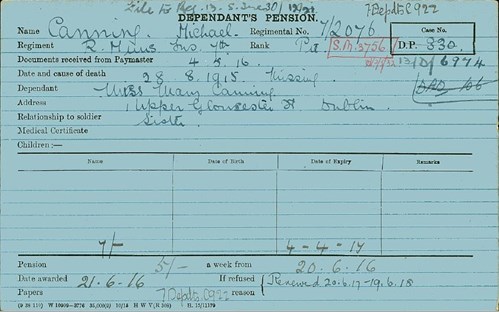 File to Reg. 13.
7 Sept 1922
DEPENDANT'S PENSION.
Name Canning. Michael. Regimental No. 7/2076 Case No.
Regiment R. Muns. Fus. 7th Rank Pte S.M.3756 D.P. 330.
Documents received from Paymaster 4 . 5 . 16 . 13/D/6974
Date and cause of death 28 . 8 . 1915 . Missing
Dependant Miss Mary Canning
Address 1 Upper Gloucester St Dublin
Relationship to soldier Sister
Medical Certificate
Children:—
Name Date of Birth Date of Expiry Remarks
7/- 4 - 4 - 17
Pension 5/- a week from 20 . 6 . 16
Date awarded 21 . 6 . 16 If refused Renewed 20.6.17-19.6.18
Papers 7 Sept 1922 reason